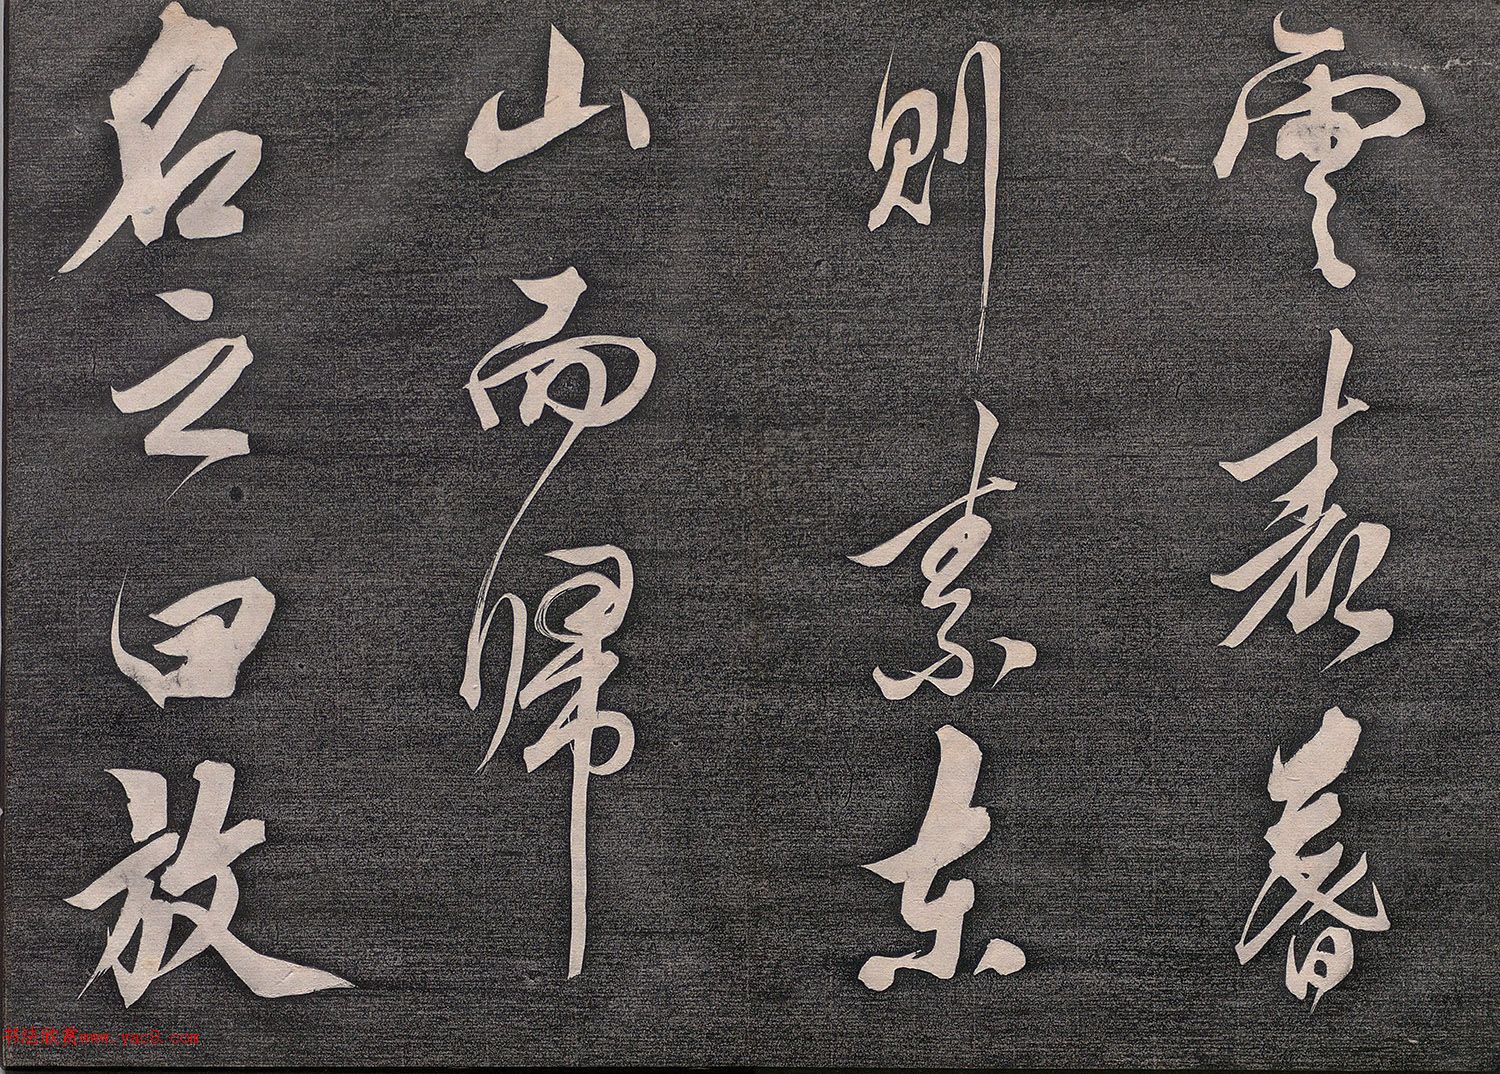 雲表暮
則素東
山而歸
名之曰放
书法欣赏www.yac8.com